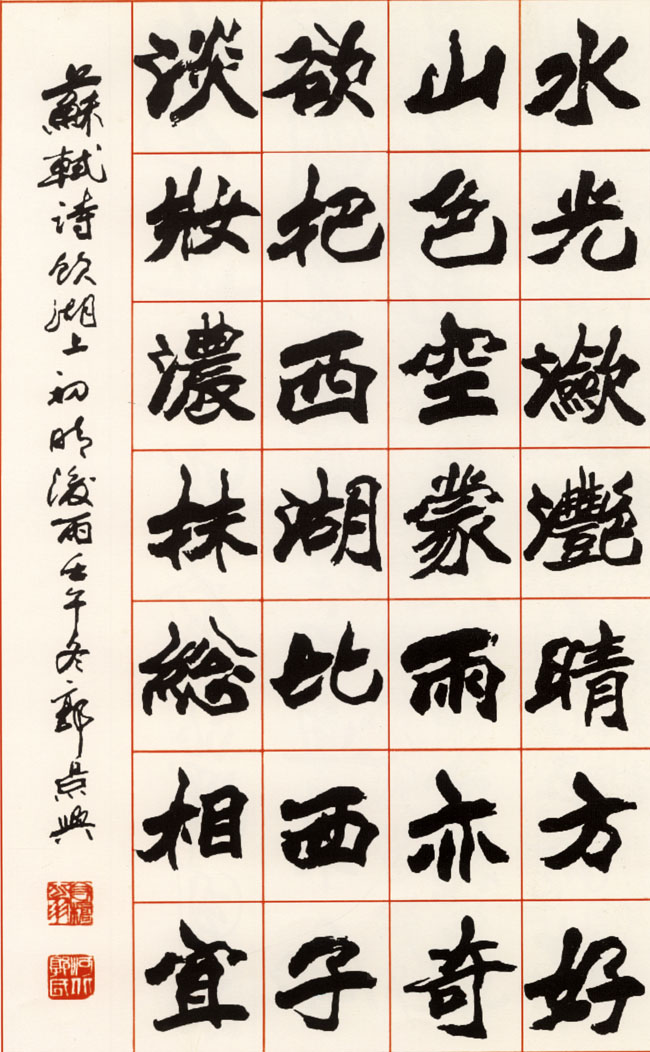 水光瀲灩晴方好
山色空蒙雨亦奇
欲把西湖比西子
淡妝濃抹總相宜
蘇軾詩飲湖上初晴後雨壬午冬郭景興